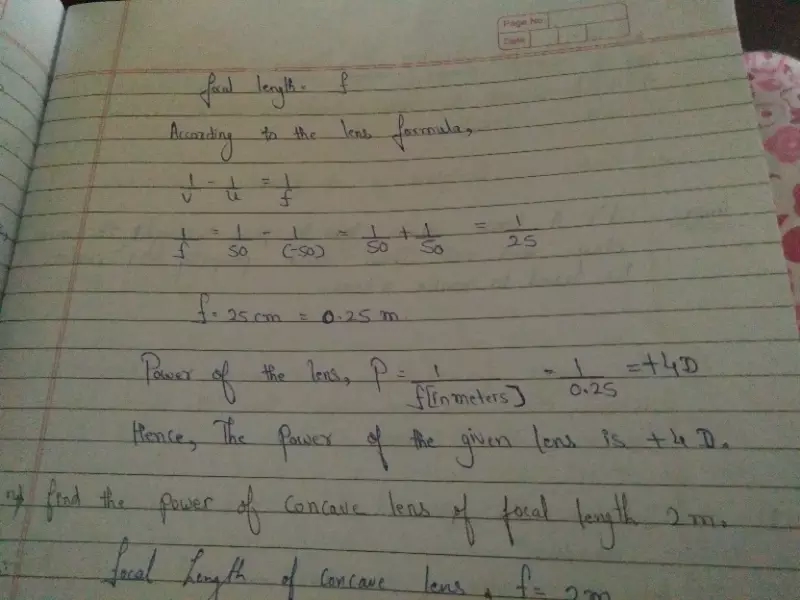 Page No
Date
focal length = f
According to the lens formula,
1/v - 1/u = 1/f
1/f = 1/50 - 1/(-50) = 1/50 + 1/50 = 1/25
f = 25 cm = 0.25 m
Power of the lens, P = 1/f[in meters] = 1/0.25 = +4D
Hence, The power of the given lens is +4 D.
find the power of concave lens of focal length 2m.
focal Length of concave lens, f = 2m